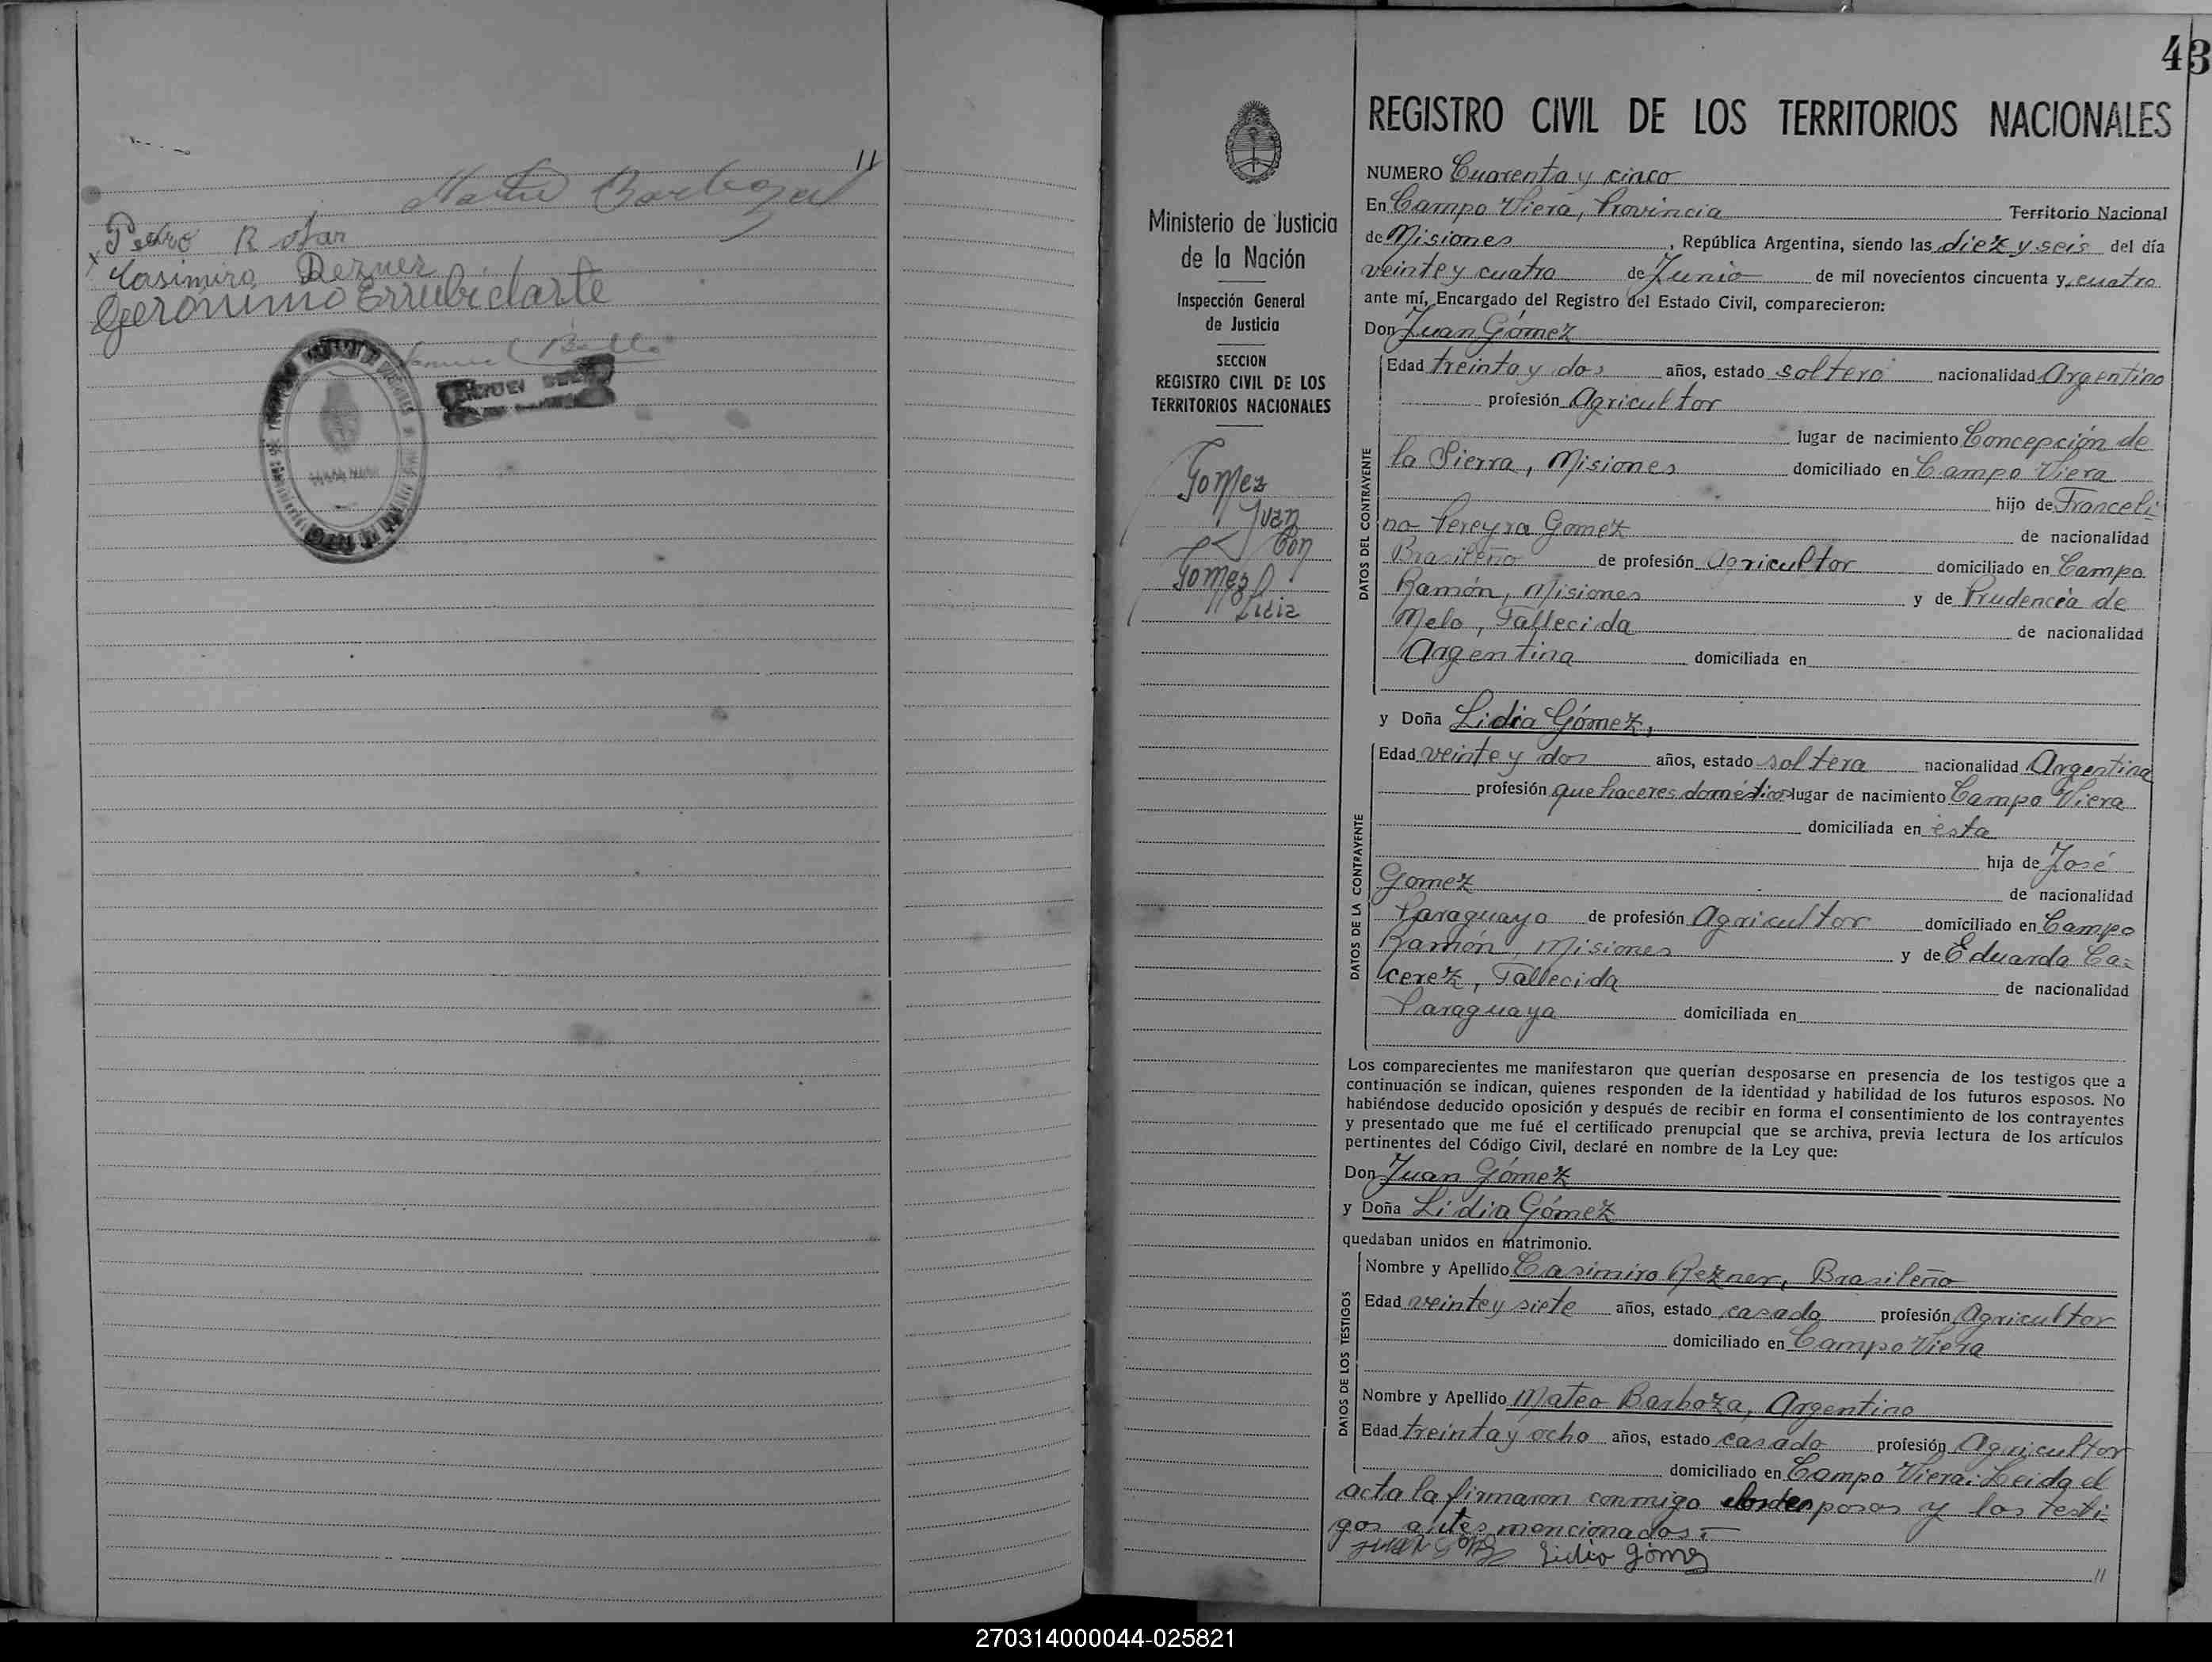 11
Mateo Barboza
Pedro Rotar
Casimiro Rezner
Gerónimo Errubidarte
43
REGISTRO CIVIL DE LOS TERRITORIOS NACIONALES
Ministerio de Justicia
de la Nación
Inspección General
de Justicia
SECCION
REGISTRO CIVIL DE LOS
TERRITORIOS NACIONALES
Gomez
Juan
Con
Gomez
Lidia
NUMERO Cuarenta y cinco
En Campo Viera, Provincia Territorio Nacional
de Misiones, República Argentina, siendo las diez y seis del día
veinte y cuatro de Junio de mil novecientos cincuenta y cuatro
ante mí, Encargado del Registro del Estado Civil, comparecieron:
Don Juan Gómez
DATOS DEL CONTRAYENTE
Edad treinta y dos años, estado soltero nacionalidad Argentino
profesión Agricultor
lugar de nacimiento Concepción de
la Sierra, Misiones domiciliado en Campo Viera
hijo de Franceli-
no Pereyra Gomez de nacionalidad
Brasileño de profesión Agricultor domiciliado en Campo
Ramón, Misiones y de Prudencia de
Melo, Fallecida de nacionalidad
Argentina domiciliada en
y Doña Lidia Gómez,
DATOS DE LA CONTRAYENTE
Edad veinte y dos años, estado soltera nacionalidad Argentina
profesión quehaceres domésticos lugar de nacimiento Campo Viera
domiciliada en esta
hija de José
Gomez de nacionalidad
Paraguayo de profesión Agricultor domiciliado en Campo
Ramón, Misiones y de Eduarda Ca-
cerez, Fallecida de nacionalidad
Paraguaya domiciliada en
Los comparecientes me manifestaron que querían desposarse en presencia de los testigos que a
continuación se indican, quienes responden de la identidad y habilidad de los futuros esposos. No
habiéndose deducido oposición y después de recibir en forma el consentimiento de los contrayentes
y presentado que me fué el certificado prenupcial que se archiva, previa lectura de los artículos
pertinentes del Código Civil, declaré en nombre de la Ley que:
Don Juan Gómez
y Doña Lidia Gómez
quedaban unidos en matrimonio.
DATOS DE LOS TESTIGOS
Nombre y Apellido Casimiro Rezner, Brasileño
Edad veinte y siete años, estado casado profesión Agricultor
domiciliado en Campo Viera
Nombre y Apellido Mateo Barboza, Argentino
Edad treinta y ocho años, estado casado profesión Agricultor
domiciliado en Campo Viera. Leida el
acta la firmaron conmigo los esposos y los testi-
gos antes mencionados.-
Juan Gómez Lidia Gómez
11
270314000044-025821